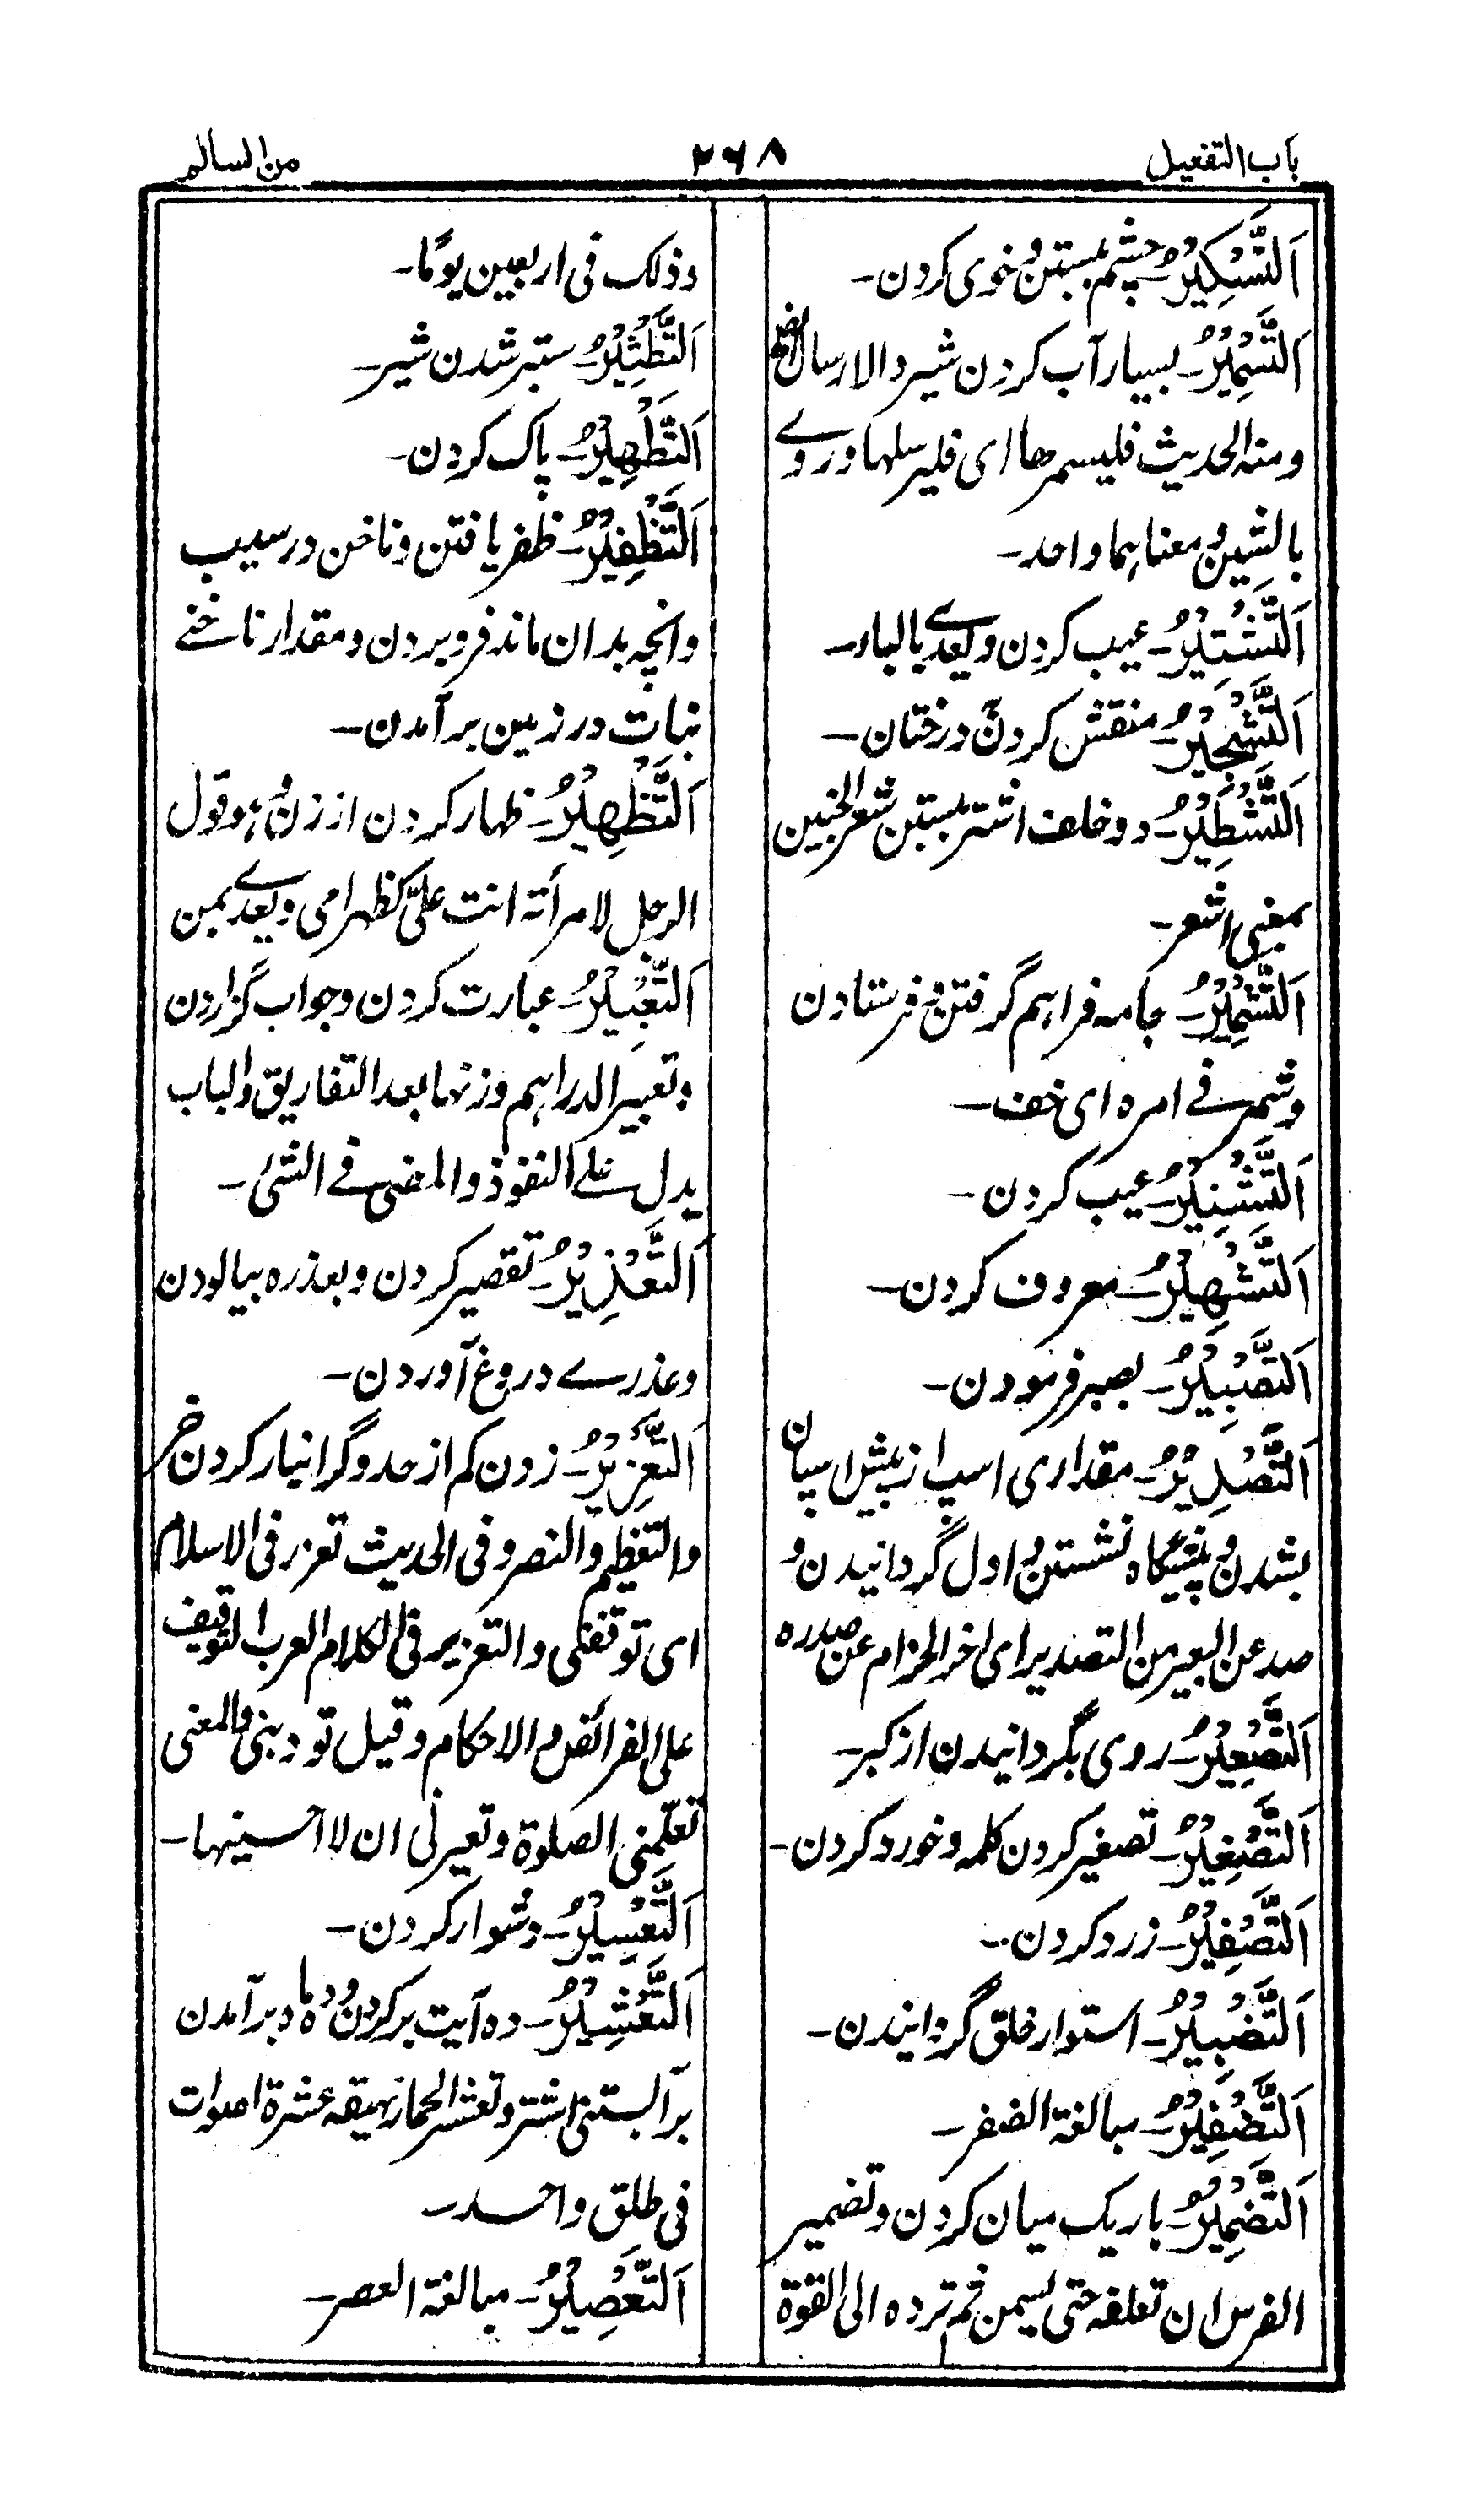 باب التفعیل
۲۶۸
من السالم
اَلتَّسْکِیْرُ۔ چشم ببستن و خوی کردن۔
اَلتَّسْمِیْرُ۔ بسیار آب کردن شیر و الارسال ایضا
و منه الحدیث فلیسمرها ای فلیرسلها و روے
بالشین و معناہما واحد۔
اَلتَّشْتِیْرُ۔ عیب کردن و یعدے بالباء۔
اَلتَّشْجِیْرُ۔ منقش کردن درختان۔
اَلتَّشْطِیْرُ۔ دو خلف اشتر ببستن شعر الجنین
بمعنی اشعر۔
اَلتَّشْمِیْرُ۔ جامه فراہم گرفتن و فرستادن
و شمر فے امره ای خف۔
اَلتَّشْنِیْرُ۔ عیب کردن۔
اَلتَّشْهِیْرُ۔ معروف کردن۔
اَلتَّصْبِیْرُ۔ بصبر فرمودن۔
اَلتَّصْدِیْرُ۔ مقداری اسپ از پیش اسپان
بشدن و پیشگاه نشستن و اول گردانیدن و
صدر عن البعیر من التصدیر ای اخر الحزام عن صدره
اَلتَّصْعِیْرُ۔ روی بگردانیدن از کبر۔
اَلتَّصْغِیْرُ۔ تصغیر کردن کلمه و خورد کردن۔
اَلتَّصْفِیْرُ۔ زرد کردن۔
اَلتَّضْبِیْرُ۔ استوار خلق گردانیدن۔
اَلتَّضْفِیْرُ۔ مبالغة الضفر۔
اَلتَّضْمِیْرُ۔ باریک میان کردن و تضمیر
الفرس ان تعلفه حتی یسمن ثم ترده الی القوة
و ذلک فی اربعین یومًا۔
اَلتَّطْثِیْرُ۔ ستبر شدن شیر۔
اَلتَّطْهِیْرُ۔ پاک کردن۔
اَلتَّظْفِیْرُ۔ ظفر یافتن و ناخن در سیب
و انچه بدان ماند فرو بردن و مقدار ناخنے
نبات در زمین برآمدن۔
اَلتَّظْهِیْرُ۔ ظہار کردن از زن و ہو قول
الرجل لامرأته انت علیّ کظہر امی و یعدے بمن
اَلتَّعْبِیْرُ۔ عبارت کردن و جواب گزاردن
و تعبیر الدراہم وزنها بعد التفاریق و الباب
یدل علے النفوذ و المضی فے الشئ۔
اَلتَّعْذِیْرُ۔ تقصیر کردن و بعذره بیالودن
و عذرے دروغ آوردن۔
اَلتَّعْزِیْرُ۔ زدن کم از حد و گرانبار کردن خر
و التعظیم و النصر و فی الحدیث تعزر فی الاسلام
ای توقفنی و التعزیر فی الکلام العرب التوقیف
علی الفرائض و الاحکام و قیل تودبنی و المعنی
تعلّمنی الصلوة و تعیرنی ان لا احسنها۔
اَلتَّعْسِیْرُ۔ دشوار کردن۔
اَلتَّعْشِیْرُ۔ ده آیت بر کردن و ده ماه برآمدن
بر آبستنی اشتر و تعشیر الحمار نہیقه عشرة اصوات
فی طلق واحد۔
اَلتَّعْصِیْرُ۔ مبالغة العصر۔